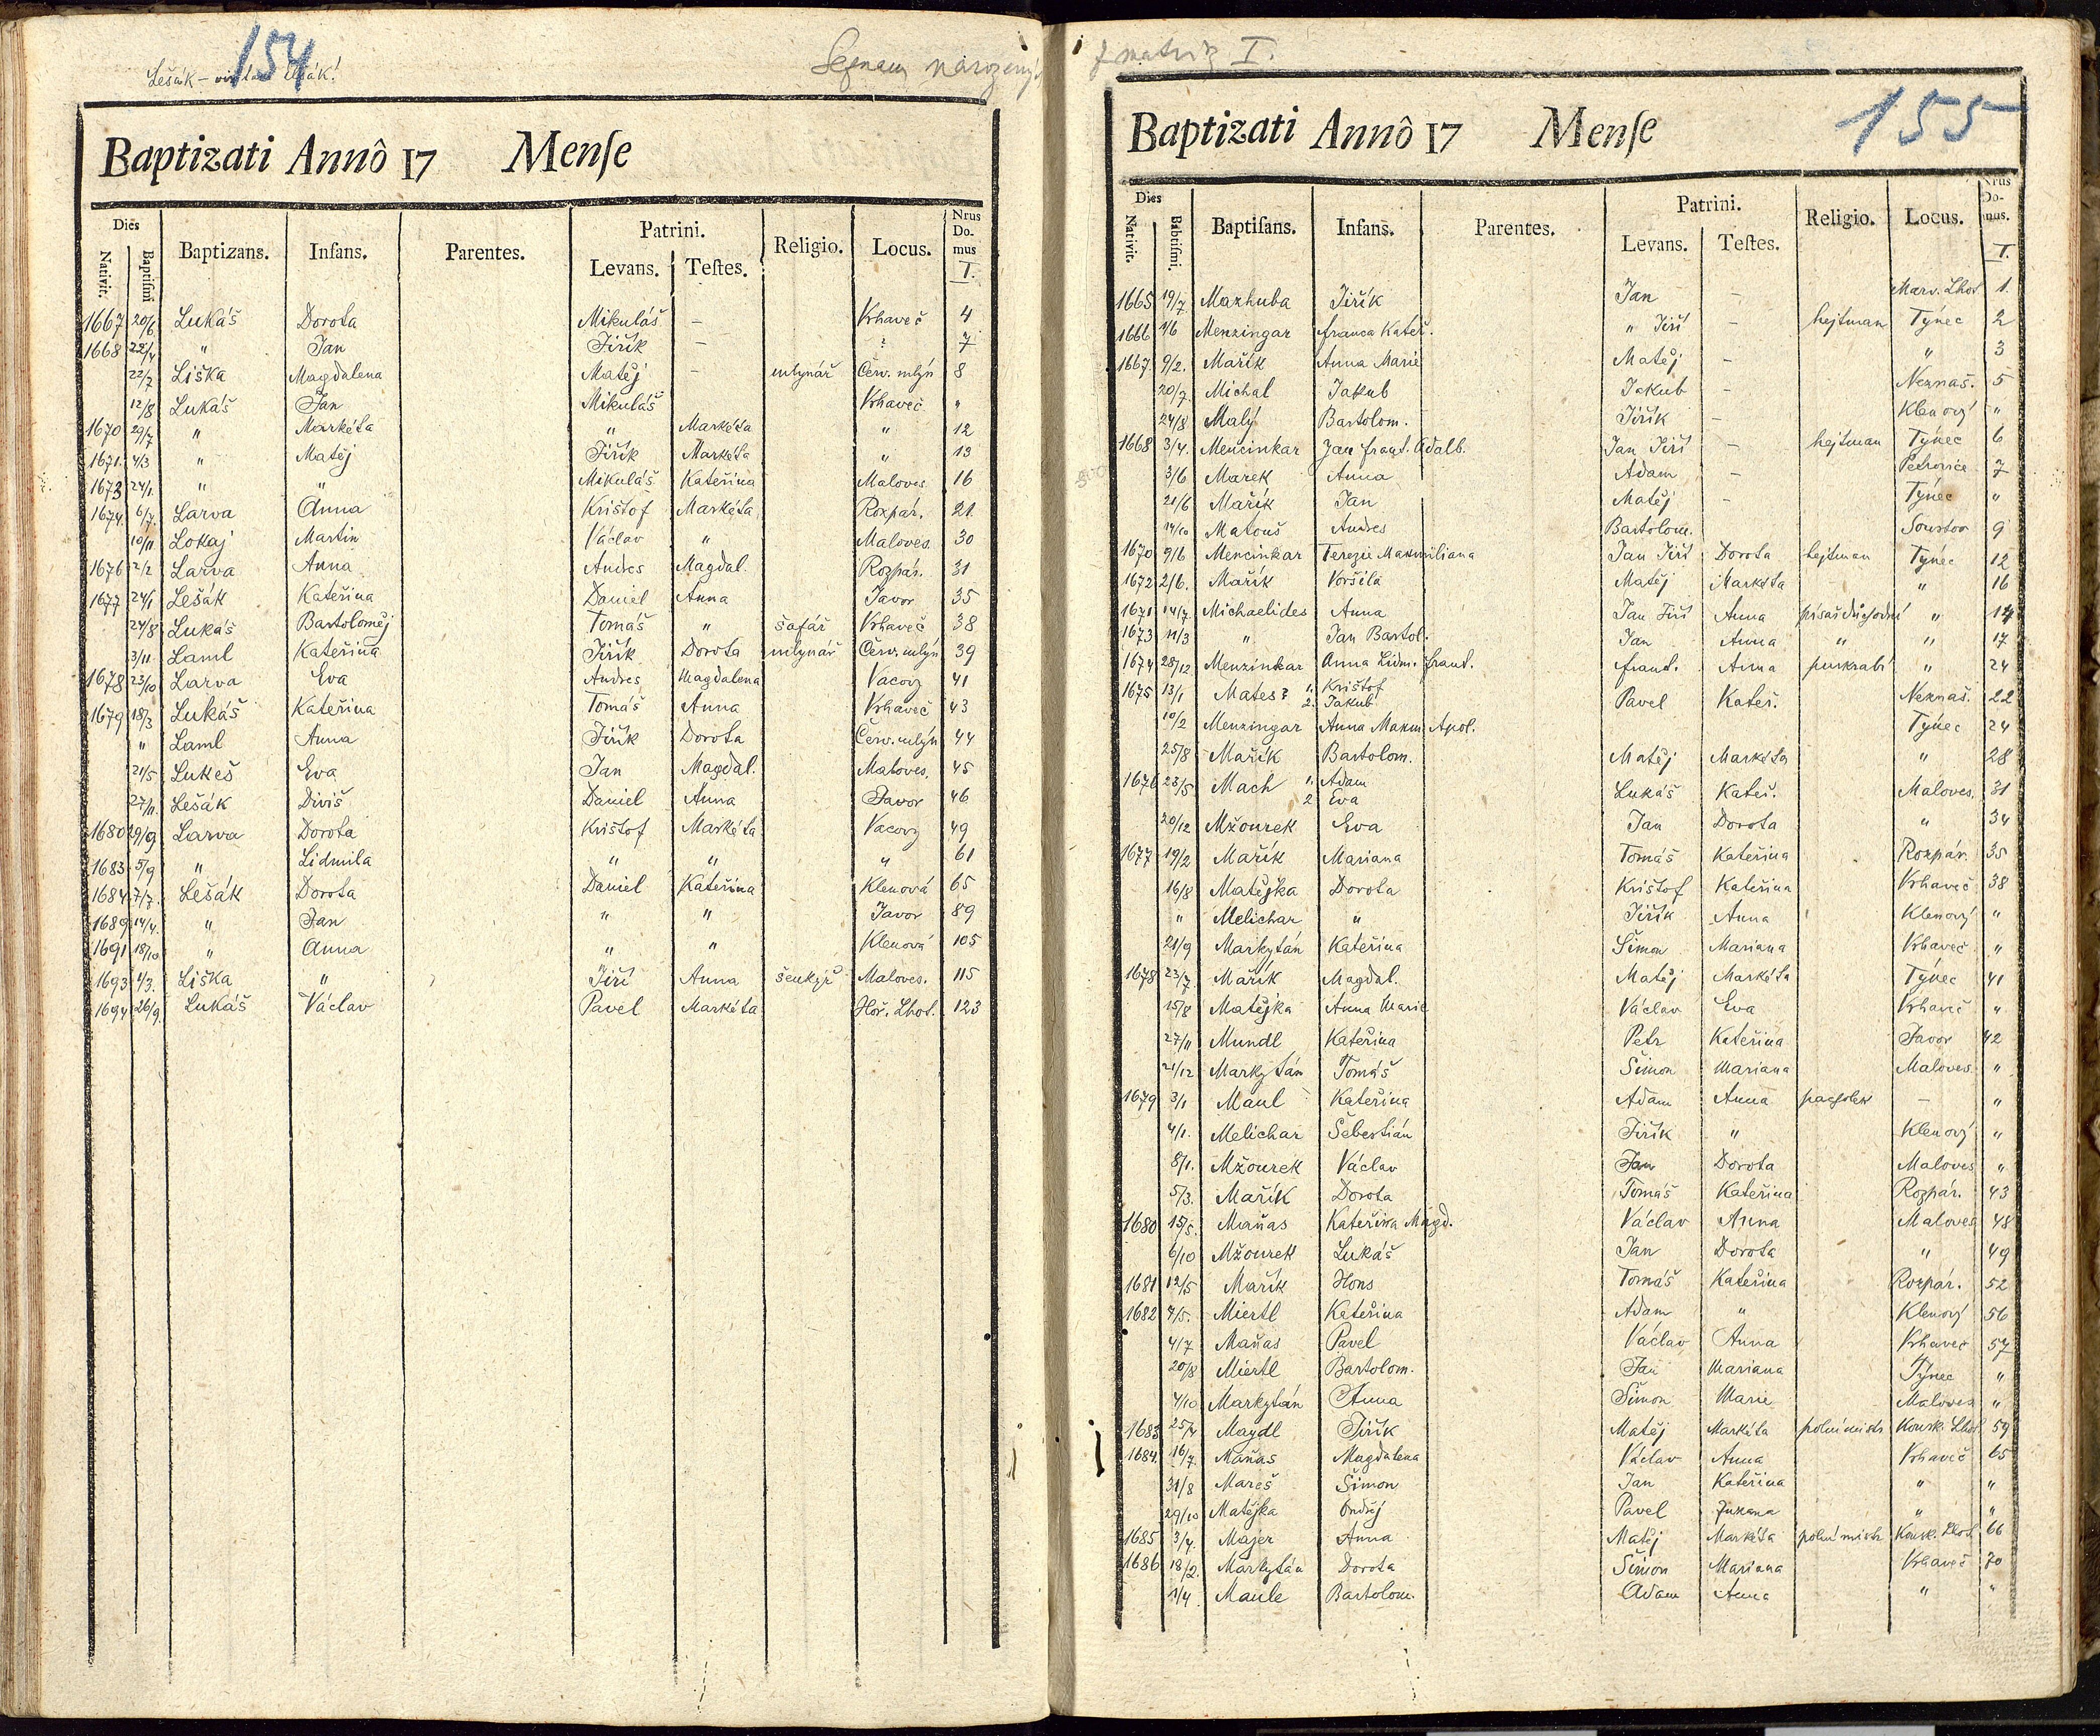 154
Lešák –
Seznam narozených
Baptizati Annô 17 Menſe
Dies Nativit. Baptiſmi Baptizans. Infans. Parentes. Patrini. Levans. Teſtes. Religio. Locus. Nrus Do- mus I.
1667 20/6 Lukáš Dorota Mikuláš – Vrhaveč 4
1668 22/4 " Jan Jiřík – ? 7
22/7 Liška Magdalena Matěj – mlynář Červ. mlýn 8
12/8 Lukáš Jan Mikuláš Vrhaveč "
1670 29/7 " Markéta " Markéta " 12
1671 4/3 " Matěj Jiřík Markéta " 13
1673 24/1 " " Mikuláš Kateřina Maloves. 16
1674 6/7 Larva Anna Krištof Markéta Rozpár. 21
10/11 Lokaj Martin Václav " Maloves. 30
1676 2/2 Larva Anna Andres Magdal. Rozpár. 31
1677 24/1 Lešák Kateřina Daniel Anna Javor 35
24/8 Lukáš Bartoloměj Tomáš " šafář Vrhaveč 38
3/11 Laml Kateřina Jiřík Dorota mlynář Červ. mlýn 39
1678 23/10 Larva Eva Andres Magdalena Vacovy 41
1679 18/3 Lukáš Kateřina Tomáš Anna Vrhaveč 43
" Laml Anna Jiřík Dorota Červ. mlýn 44
21/5 Lukeš Eva Jan Magdal. Maloves. 45
27/11 Lešák Diviš Daniel Anna Javor 46
1680 29/9 Larva Dorota Krištof Markéta Vacovy 49
1683 5/9 " Lidmila " " " 61
1684 7/7 Lešák Dorota Daniel Kateřina Klenová 65
1689 14/4 " Jan " " Javor 89
1691 18/10 " Anna " " Klenová 105
1693 1/3 Liška " Jiří Anna šenkýř Maloves. 115
1694 26/9 Lukáš Václav Pavel Markéta Hoř. Lhot. 123
z matriz I.
155
Baptizati Annô 17 Menſe
Dies Nativit. Babtiſmi. Baptiſans. Infans. Parentes. Patrini. Levans. Teſtes. Religio. Locus. Nrus Do- mus. I.
1665 19/7 Mazhuba Jiřík Jan – Marv. Lhot 1
1666 1/6 Menzingar Franca Kateř. " Jiří – hejtman Týnec 2
1667 9/2. Mařík Anna Marie Matěj – " 3
20/7 Michal Jakub Jakub – Neznaš. 5
24/8 Malý Bartolom. Jiřík – Klenový "
1668 3/4. Mencinkar Jan Frant. Adalb. Jan Jiří – hejtman Týnec 6
3/6 Marek Anna Adam – Petrovice 7
21/6 Mařík Jan Matěj – Týnec "
14/10 Matouš Andres Bartolom. 9
1670 9/6 Mencinkar Terezie Maxmiliana Jan Jiří Dorota hejtman Týnec 12
1672 2/6. Mařík Voršila Matěj Markéta " 16
1671 14/7 Michaelides Anna Jan Jiří Anna písař důchodní " 14
1673 11/3 " Jan Bartol. Jan Anna " " 17
1674 28/12 Menzinkar Anna Lidm. Frant. Frant. Anna purkrabí " 24
1675 13/1 Mates? 1. Krištof
2. Jakub Pavel Kateř. Neznaš. 22
10/2 Menzingar Anna Maxm. Apol. Týnec 24
25/8 Mařík Bartolom. Matěj Markéta " 28
1676 23/5 Mach 1. Adam
2 Eva Lukáš Kateř. Maloves. 31
20/12 Mžourek Eva Jan Dorota " 34
1677 19/2 Mařík Mariana Tomáš Kateřina Rozpár. 35
16/8 Matějka Dorota Krištof Kateřina Vrhaveč 38
" Melichar " Jiřík Anna Klenový "
21/9 Markytán Kateřina Šimon Mariana Vrhaveč "
1678 23/7 Mařík Magdal. Matěj Markéta Týnec 41
15/8 Matějka Anna Marie Václav Eva Vrhaveč "
27/11 Mundl Kateřina Petr Kateřina Javor 42
21/12 Markytán Tomáš Šimon Mariana Maloves. "
1679 3/1 Maul Kateřina Adam Anna pacholek – "
4/1. Melichar Šebestián Jiřík " Klenový "
8/1. Mžourek Václav Jan Dorota Maloves "
5/3. Mařík Dorota Tomáš Kateřina Rozpár. 43
1680 15/5. Maňas Kateřina Magd. Václav Anna Maloves 48
6/10 Mžourek Lukáš Jan Dorota " 49
1681 12/5 Mařík Hons Tomáš Kateřina Rozpár. 52
1682 7/5. Miertl Kateřina Adam " Klenový 56
4/7 Maňas Pavel Václav Anna Vrhaveč 57
20/8 Miertl Bartolom. Jan Mariana Týnec "
4/10 Markytán Anna Šimon Marie Maloves "
1683 25/4 Maydl Jiřík Matěj Markéta polní mistr Konsk. Lhot. 59
1684. 16/7 Maňas Magdalena Václav Anna Vrhaveč 65
31/8 Mareš Šimon Jan Kateřina " "
29/10 Matějka Ondřej Pavel Zuzana " "
1685 3/4 Majer Anna Matěj Markéta polní mistr Konsk. Lhot. 66
1686 18/2. Markytán Dorota Šimon Mariana Vrhaveč 70
1/4. Maule Bartolom. Adam Anna " "